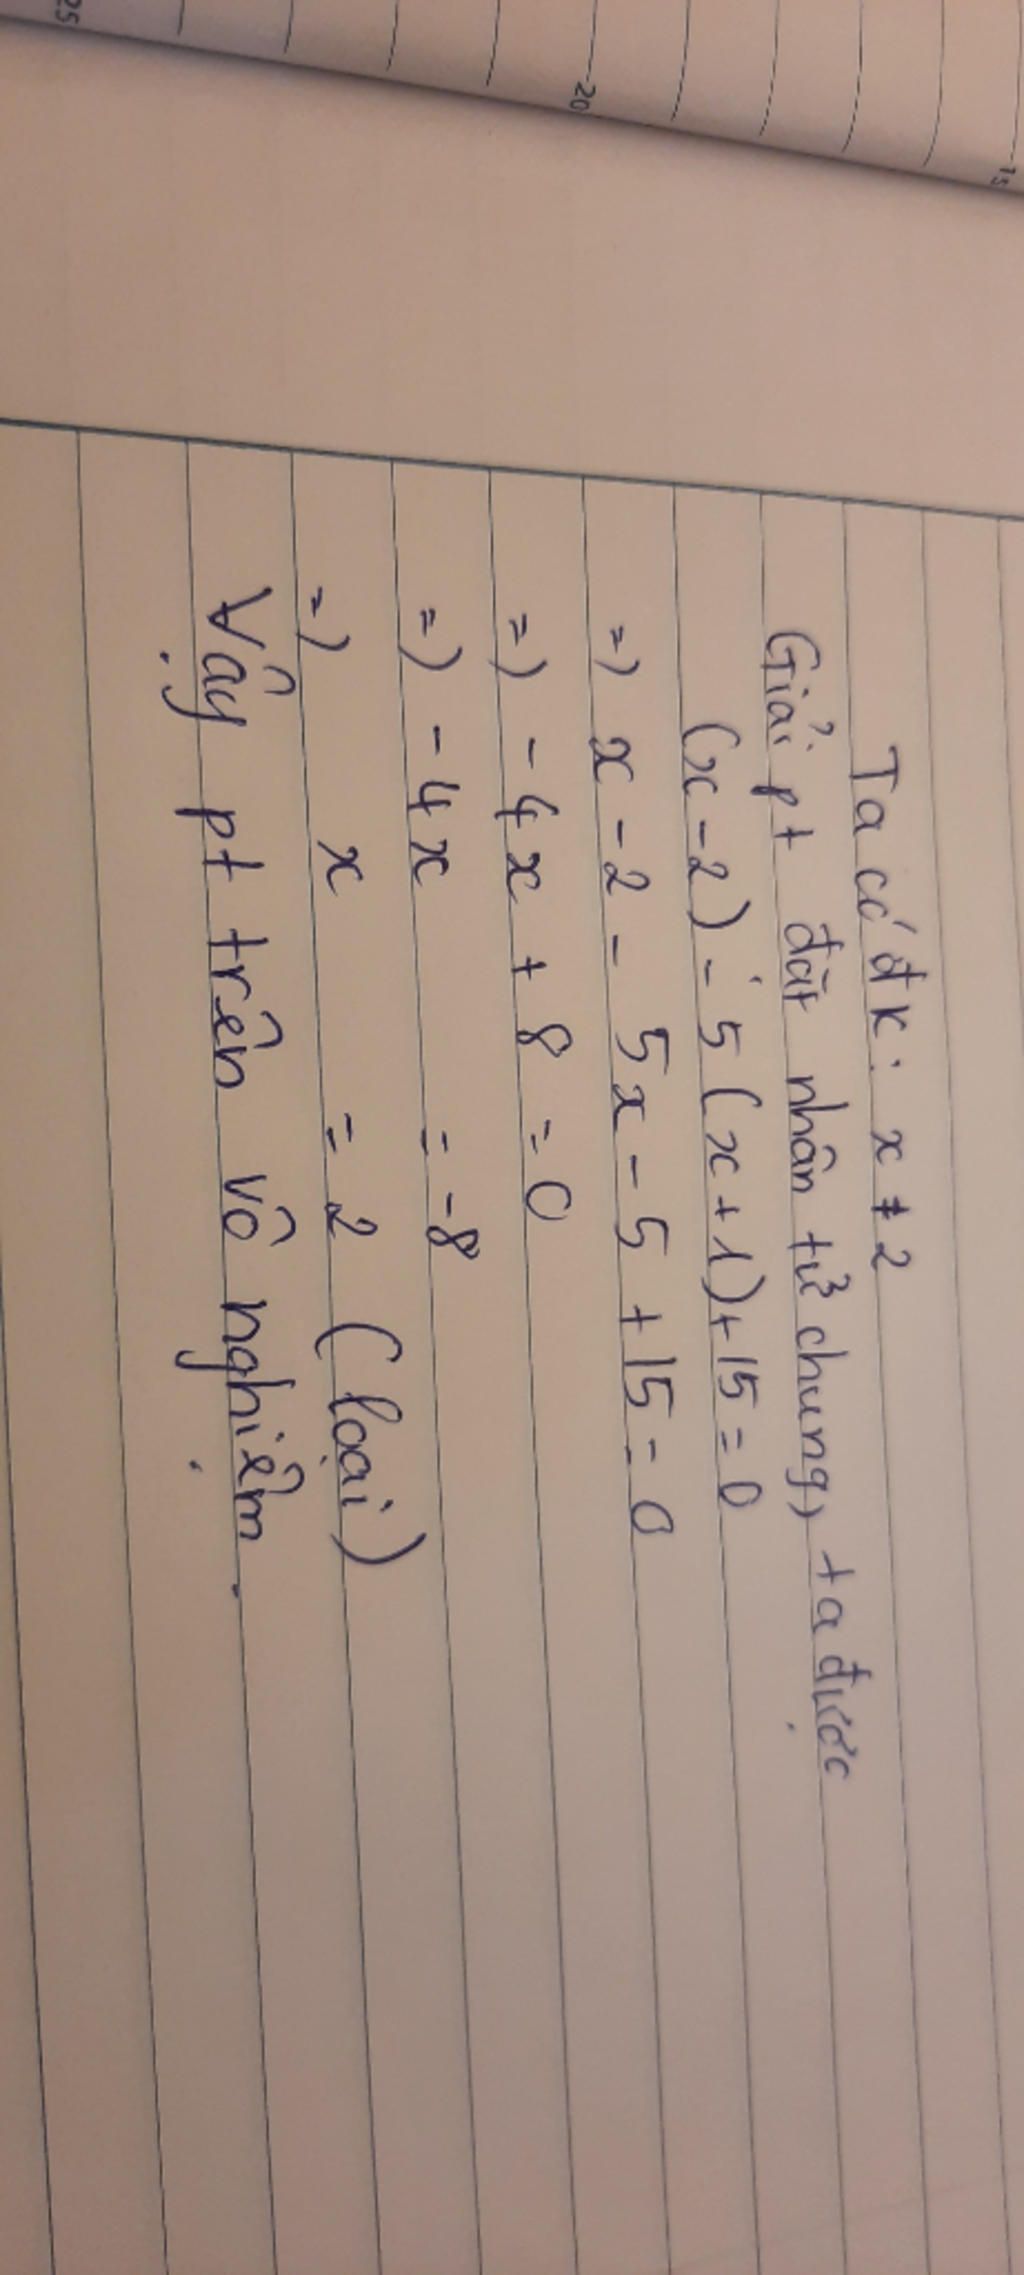 Ta có đk: x ≠ 2
Giải pt đặt nhân tử chung, ta được
(x-2) - 5(x+1)+15=0
=) x-2 - 5x-5 +15=0
=) -4x + 8 =0
=) -4x = -8
=) x = 2 (loại)
Vậy pt trên vô nghiệm.
15
20
25